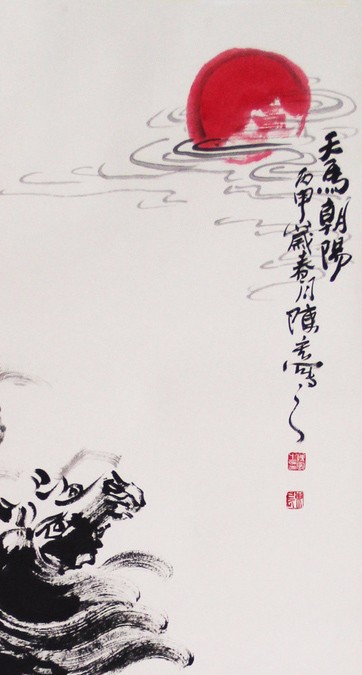 天馬朝陽
丙申歲春月陳雲寫